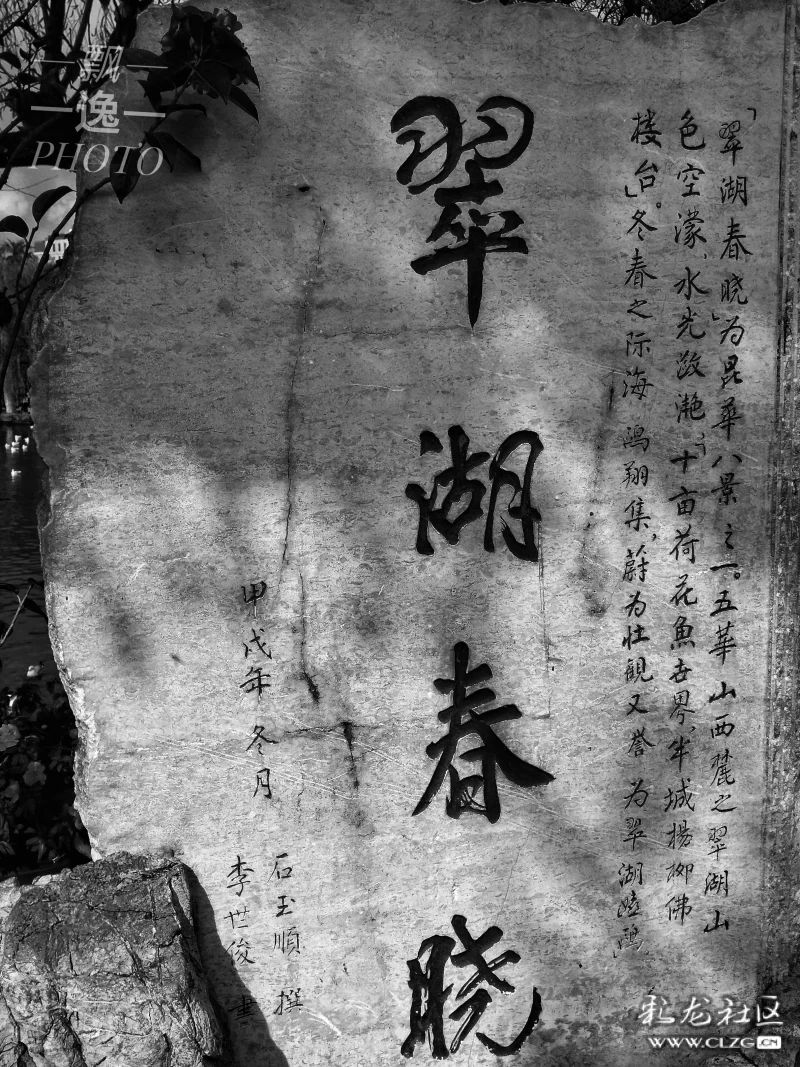 飘
逸
PHOTO
「翠湖春晓」为昆華八景之一。五華山西麓之翠湖山
色空濛、水光潋滟、「十亩荷花魚世界、半城楊柳佛
楼台」。冬春之际海鸥翔集，蔚为壮観又誉为翠湖
翠湖春晓
甲戌年冬月
石玉順 撰
李世俊 書
彩龙社区
WWW.CLZG.CN